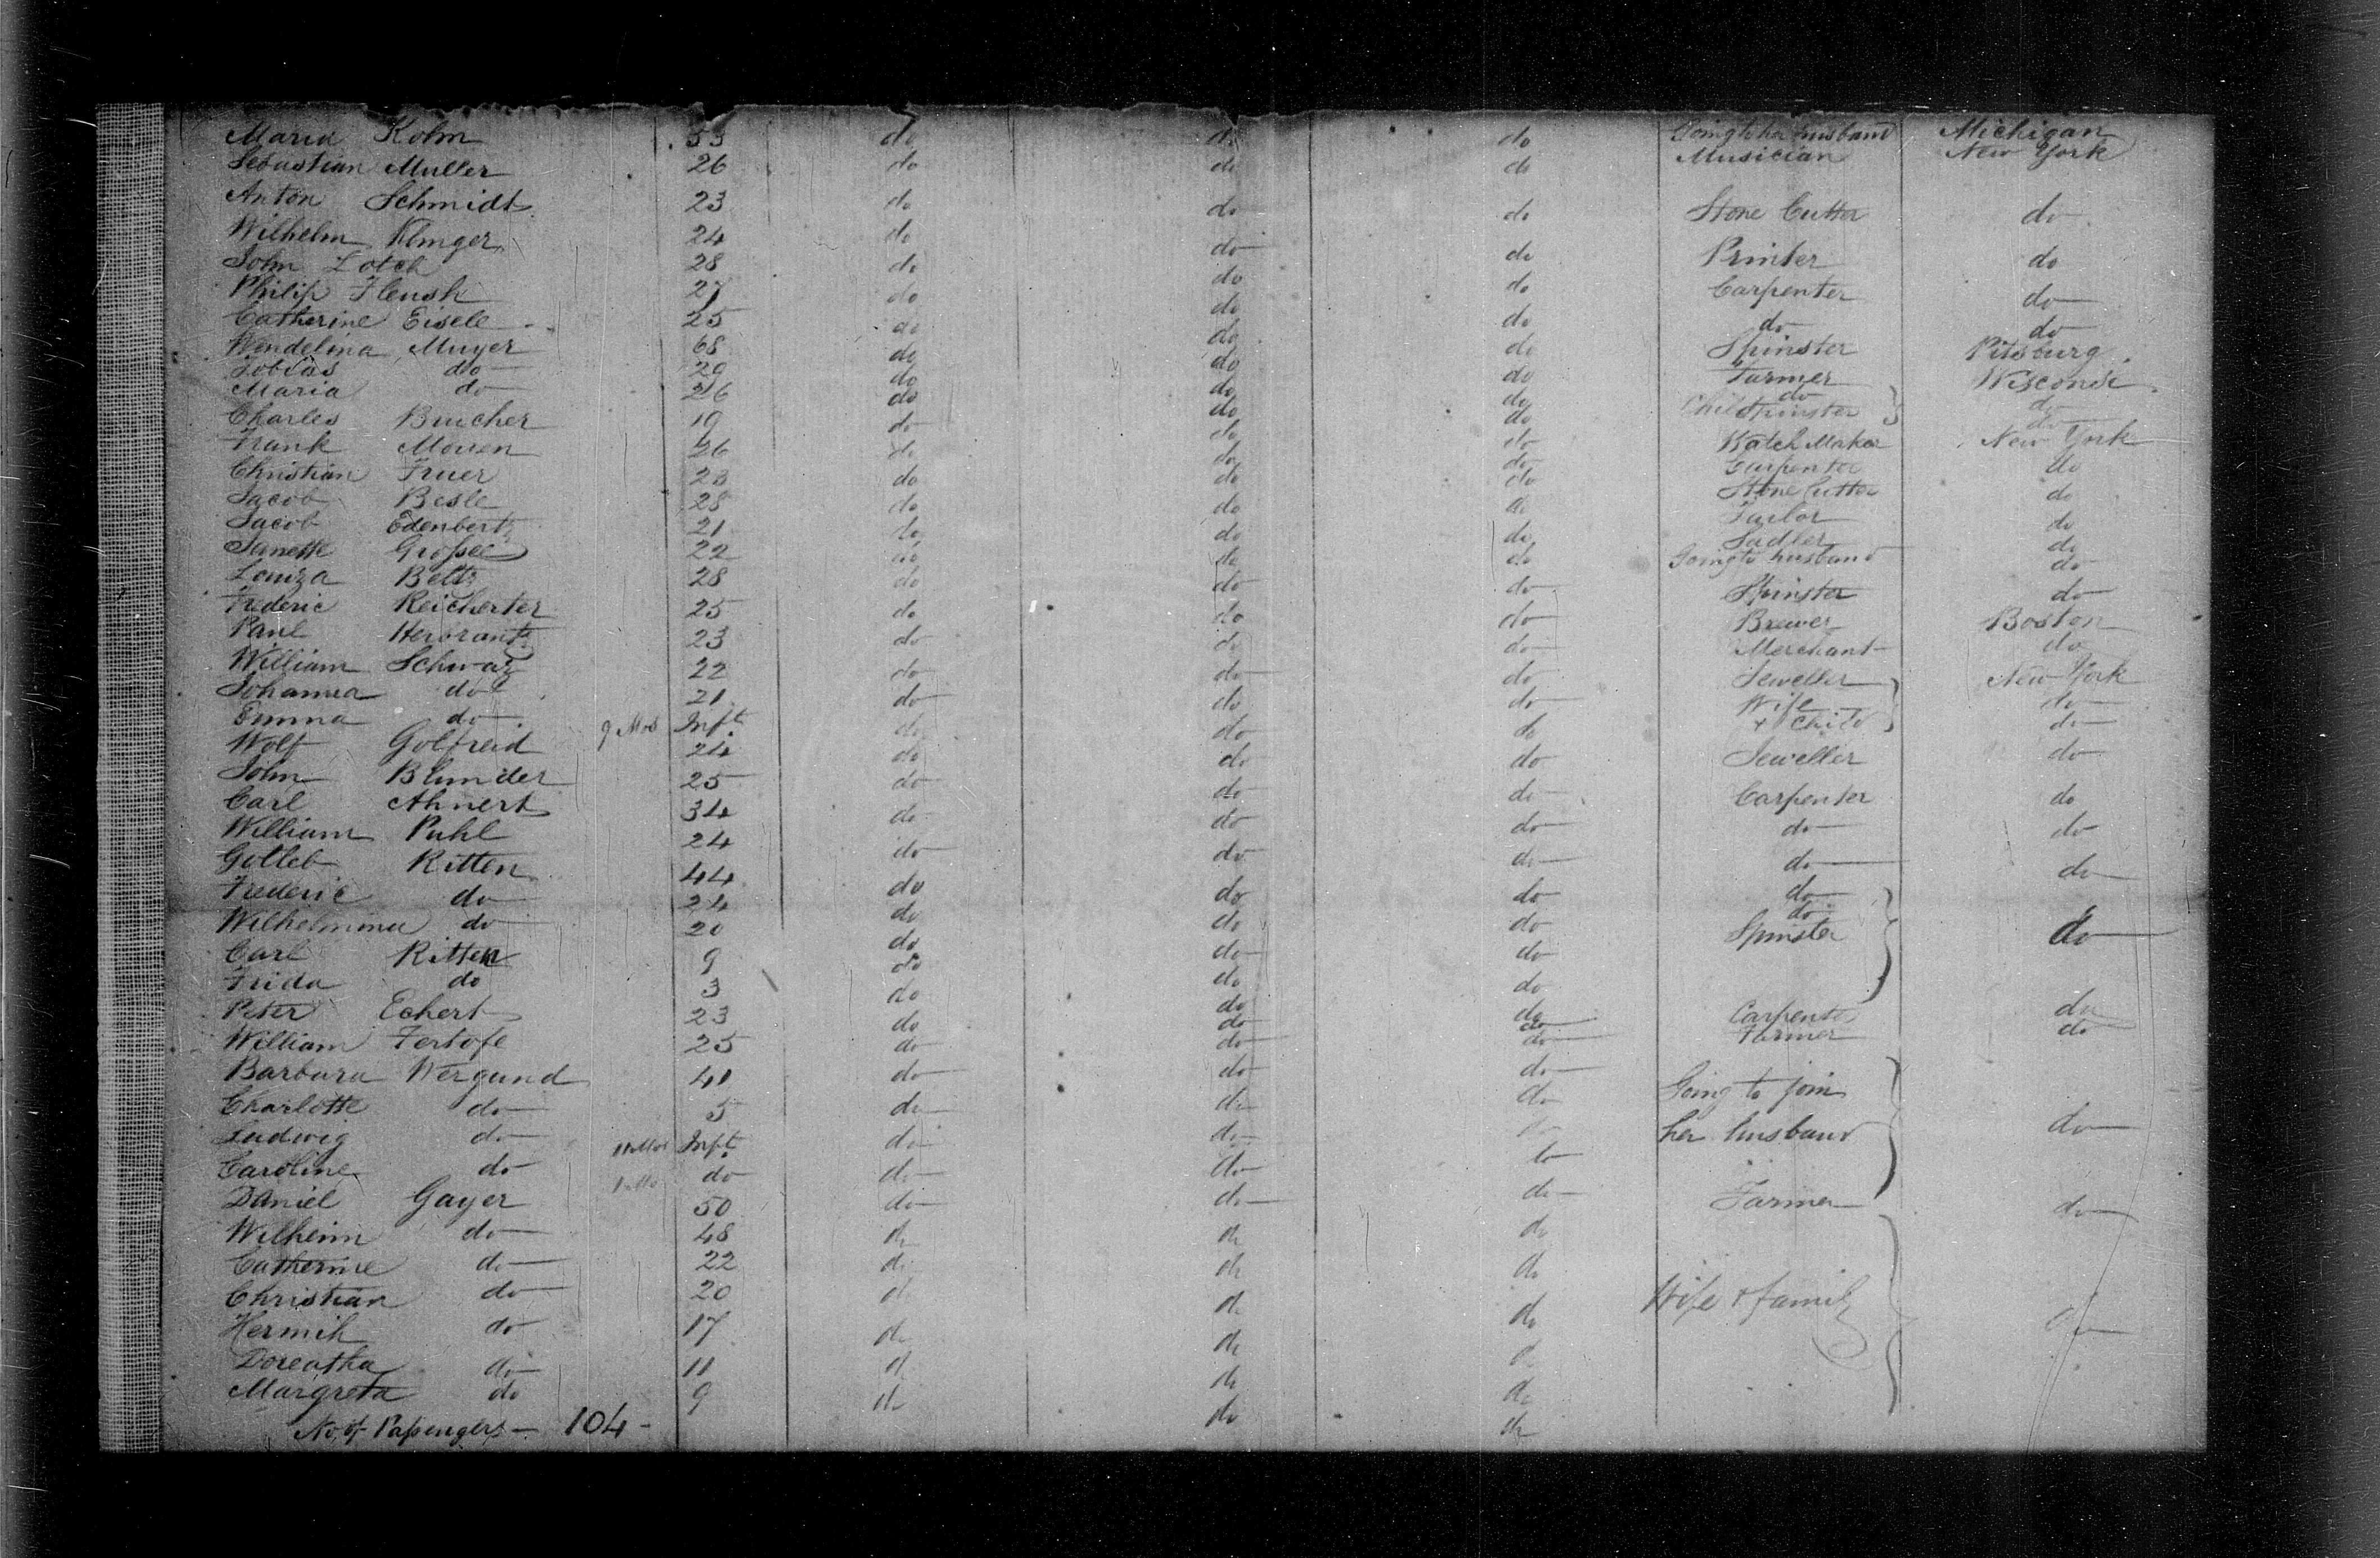 Maria Kohn 53 do do do Going to her husband Michigan
Sebastian Muller 26 do do do Musician New York
Anton Schmidt 23 do do do Stone Cutter do
Wilhelm Klinger 24 do do do Printer do
John Lotch 28 do do do Carpenter do
Philip Flensh 27 do do do do do
Catherine Eisele 25 do do do Spinster Pitsburg
Wendelina Muyer 68 do do do Farmer Wisconsi
Tobias do 29 do do do do do
Maria do 26 do do do Spinster do
Charles Bucher 19 do do do Watch Maker New York
Frank Moven 26 do do do Carpenter do
Christian Fruer 23 do do do Stone Cutter do
Jacob Besle 28 do do do Tailor do
Jacob Edenbertz 21 do do do Sadler do
Janette Grossee 22 do do do Going to husband do
Louiza Beltz 28 do do do Spinster do
Frederic Reicherter 25 do do do Brewer Boston
Paul Herbrantz 23 do do do Merchant do
William Schwaz 22 do do do Jeweller New York
Johanna do 21 do do do Wife do
Emma do 9 Mos Inft do do do + Child do
Wolf Golfreid 24 do do do Jeweller do
John Blumder 25 do do do Carpenter do
Carl Ahnert 34 do do do do do
William Puhl 24 do do do do do
Gotleb Ritten 44 do do do do
Frederic do 24 do do do do
Wilhelmina do 20 do do do Spinster do
Carl Ritten 9 do do do
Frida do 3 do do do
Peter Echert 23 do do do Carpenter do
William Fertofe 25 do do do Farmer do
Barbara Wergand 41 do do do Going to join
Charlotte do 5 do do do
Ludwig do 11 Mos Inft do do do her husband do
Caroline do do do do do
Daniel Gayer 50 do do do Farmer do
Wilheim do 48 do do do
Catherine do 22 do do do
Christian do 20 do do do Wife & family
Hermih do 17 do do do do
Doreatha do 11 do do do
Margreta do 9 do do do
No. of Passengers — 104 -